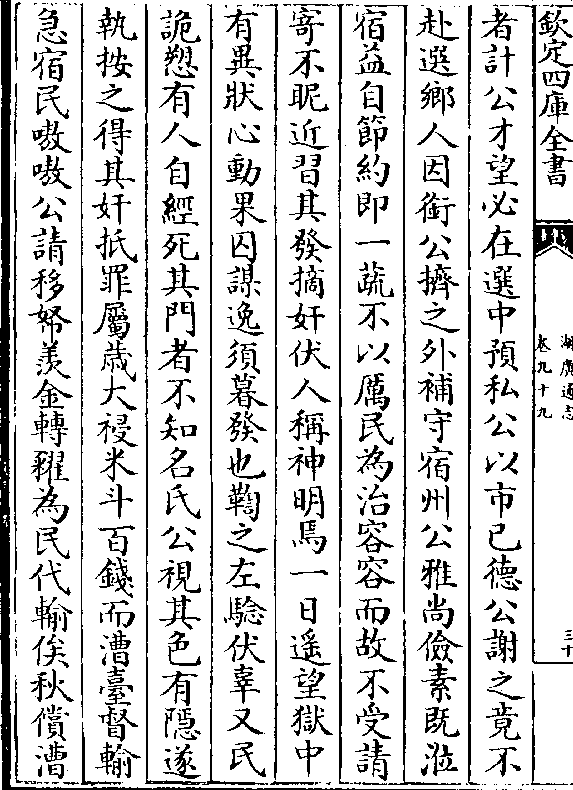 欽定四庫全書
湖廣通志
卷九十九
三十
者計公才望必在選中預私公以市已德公謝之竟不
赴選鄉人因銜公擠之外補守宿州公雅尚儉素既涖
宿益自節約即一蔬不以厲民為治容容而故不受請
寄不眤近習其發摘奸伏人稱神明焉一日遥望獄中
有異狀心動果囚謀逸須暮發也鞫之左騐伏辜又民
詭愬有人自經死其門者不知名氏公視其色有隱遂
執按之得其奸抵罪屬歳大祲米斗百錢而漕臺督輸
急宿民嗷嗷公請移帑羡金轉糴為民代輸俟秋償漕